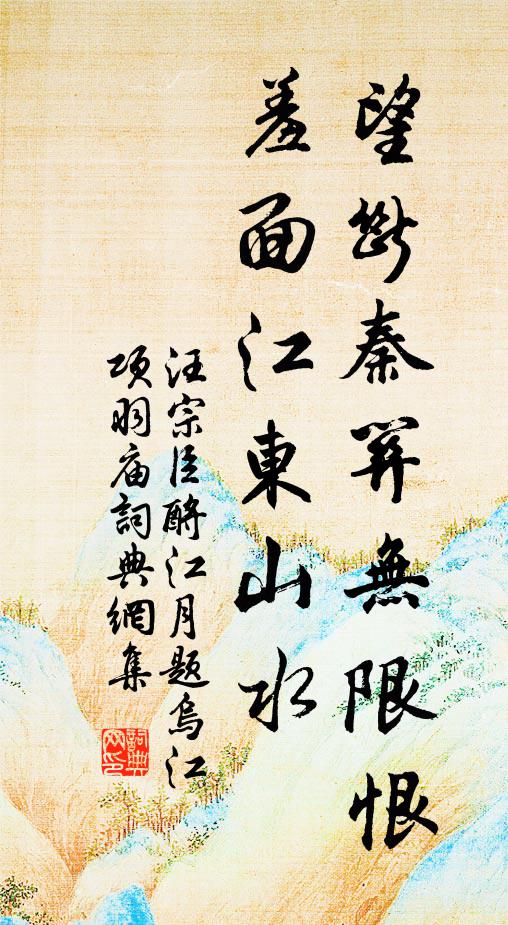 望断秦关無限恨
羞面江東山水
汪宗臣酹江月题烏江
项羽庙詞典網集
詞典網印